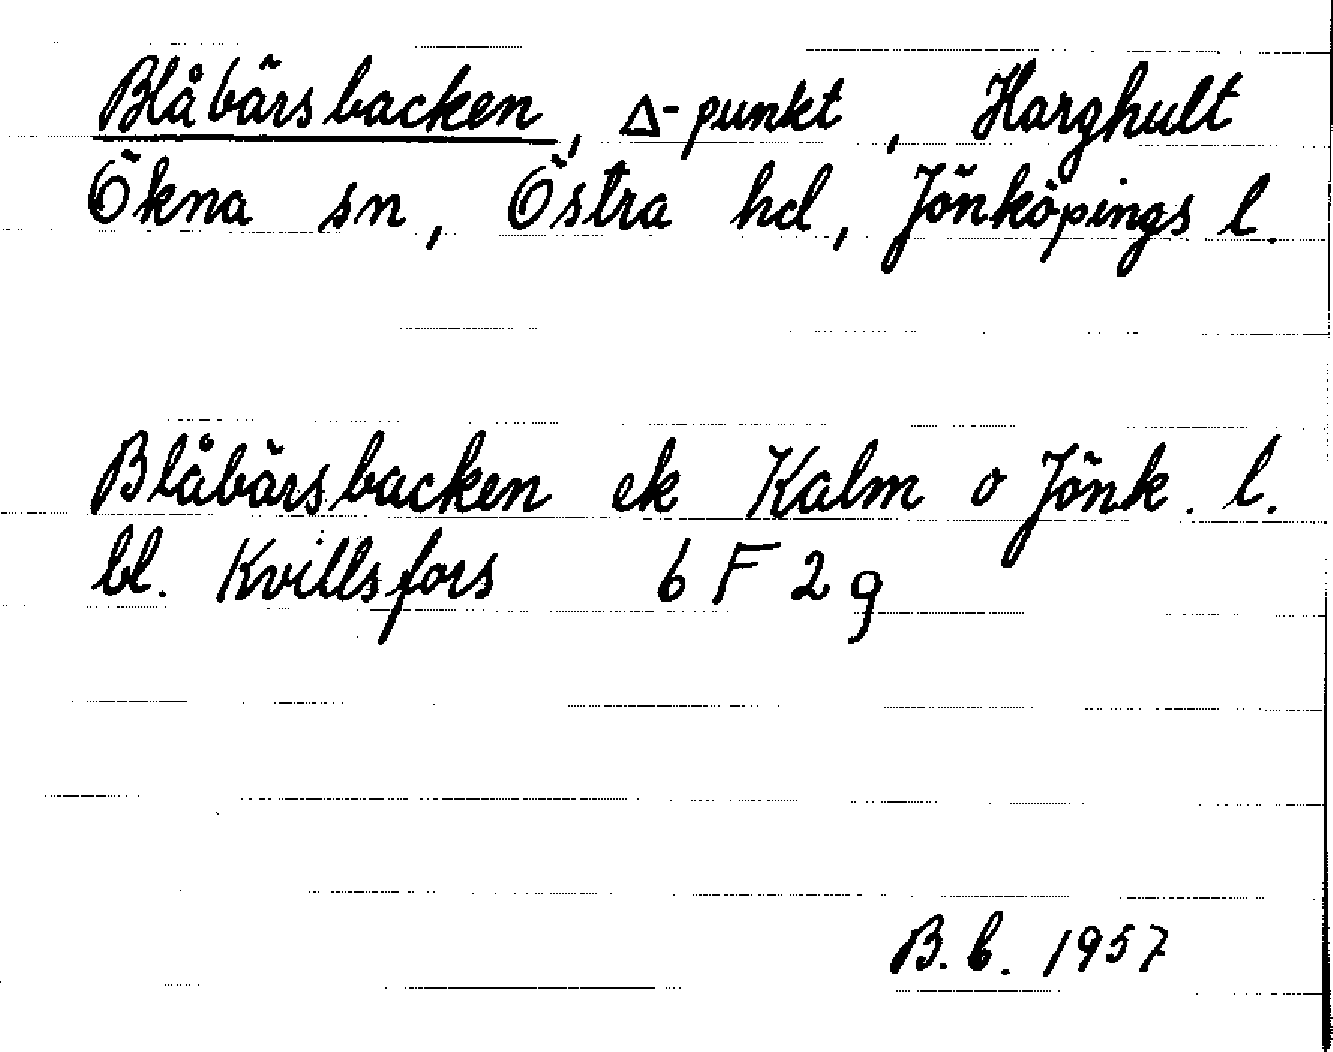 Blåbärsbacken, Δ-punkt, Harghult
Ökna sn, Östra hd, Jönköpings l.
Blåbärsbacken ek Kalm o Jönk. l.
bl. Kvillsfors 6 F 2 g
B.b. 1957